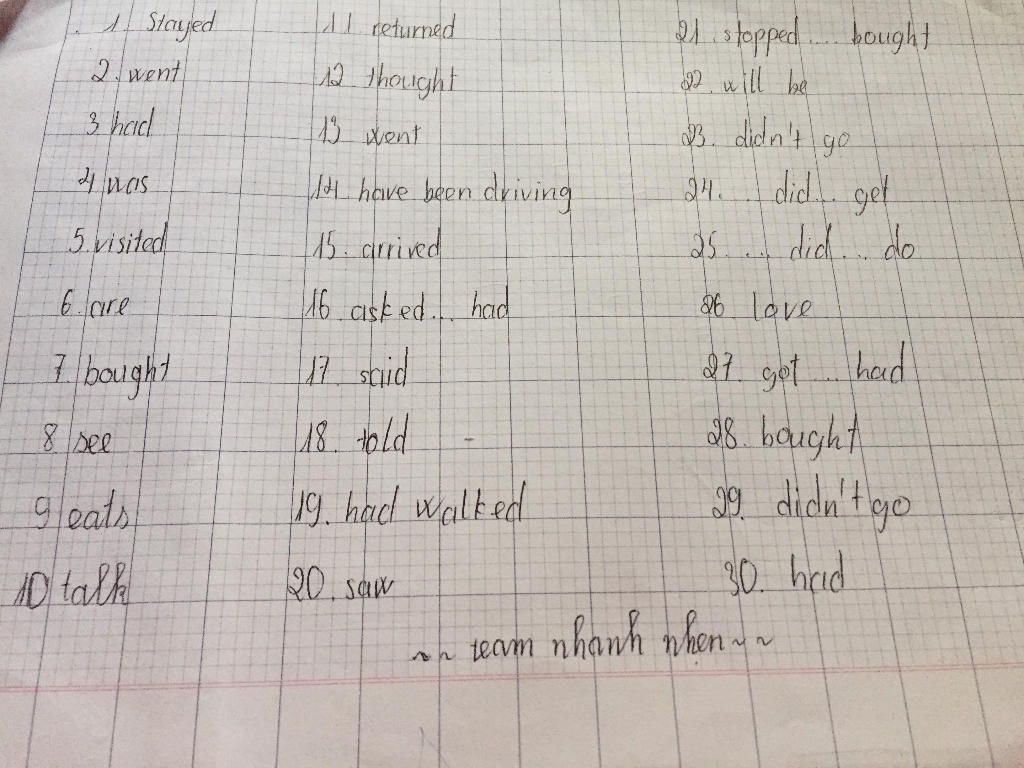 1. Stayed
2. went
3. had
4. was
5. visited
6. are
7. bought
8. see
9. eats
10. talk
11. returned
12. thought
13. went
14. have been driving
15. arrived
16. asked... had
17. said
18. told -
19. had walked
20. saw
21. stopped.... bought
22. will be
23. didn't go
24. ... did... get
25. ... did... do
26. love
27. get... had
28. bought
29. didn't go
30. had
~~ team nhanh nhen ~~